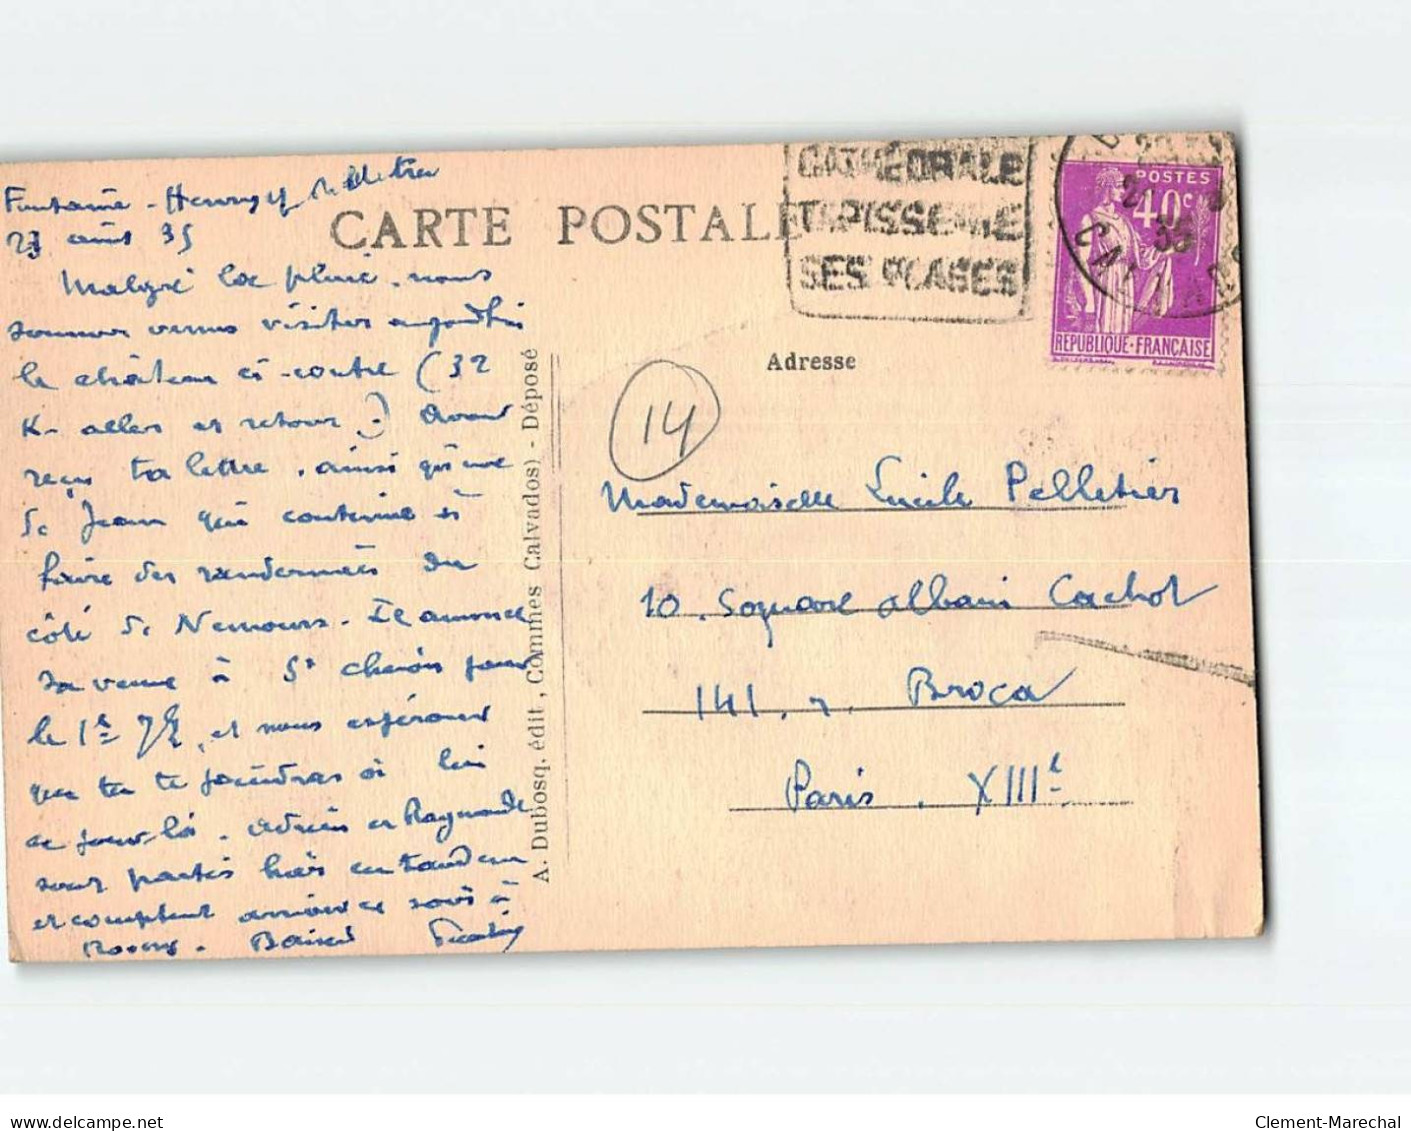 Fontaine-Henry
23 août 35
Malgré la pluie, nous
sommes venus visiter aujourd'hui
le château ci-contre (32
K. aller et retour). Avons
reçu ta lettre, ainsi qu'une
de Jean qui continue à
faire des randonnées du
côté de Nemours. Il annonce
sa venue à St Chéron pour
le 1er 7bre, et nous espérons
que tu te joindras à lui
ce jour-là. Adrien et Raymonde
sont partis hier en tandem
et comptent arriver ce soir à
Baisers
CARTE POSTALE
CATHEDRALE
TAPISSERIE
SES PLAGES
POSTES
40c
REPUBLIQUE·FRANÇAISE
35
CALVADOS
Adresse
14
Mademoiselle Lucile Pelletier
10, Square Albain Cachot
141, r. Broca
Paris. XIIIe
A. Dubosq, édit, Commes Calvados) - Déposé
www.delcampe.net
Clement-Marechal